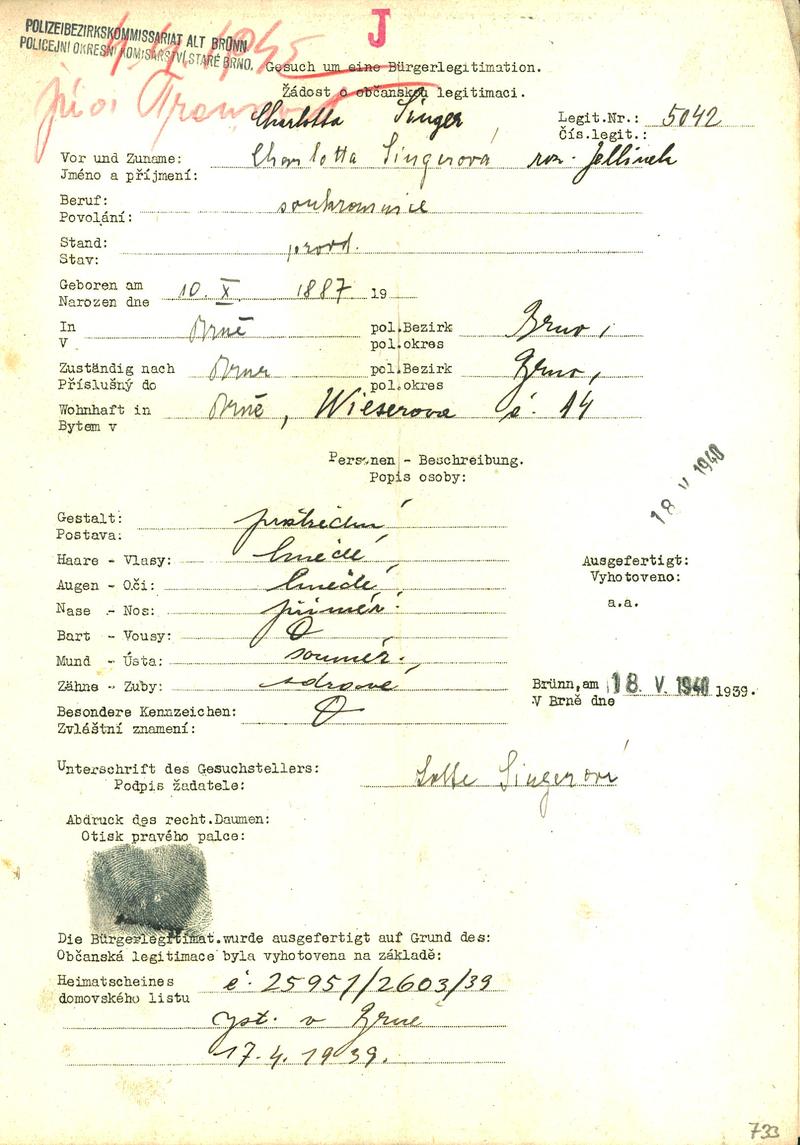 J
POLIZEIBEZIRKSKOMMISSARIAT ALT BRÜNN
POLICEJNÍ OKRESNÍ KOMISAŘSTVÍ, STARÉ BRNO.
Gesuch um eine Bürgerlegitimation.
Žádost o občanskou legitimaci.
Charlotta Singer,
Legit.Nr.: 5042
čís.legit.:
Vor und Zuname: Charlotta Singerová roz. Jellinek
Jméno a příjmení:
Beruf: soukromnice
Povolání:
Stand: provd.
Stav:
Geboren am 10. X. 1887 19
Narozen dne
In Brně pol.Bezirk Brno,
V pol.okres
Zuständig nach Brna pol.Bezirk Brno,
Příslušný do pol.okres
Wohnhaft in Brně, Wieserova č. 14
Bytem v
Personen - Beschreibung.
Popis osoby:
18 V 1940
Gestalt: prostřední,
Postava:
Haare - Vlasy: hnědé,
Augen - Oči: hnědé,
Nase - Nos: přiměř.
Bart - Vousy: 0,
Mund - Ústa: souměr.,
Zähne - Zuby: zdravé
Besondere Kennzeichen: 0
Zvláštní znamení:
Ausgefertigt:
Vyhotoveno:
a.a.
Brünn, am 18. V. 1940 1939.
V Brně dne
Unterschrift des Gesuchstellers: Lotte Singerová
Podpis žadatele:
Abdruck des recht.Daumen:
Otisk pravého palce:
Die Bürgerlegitimat.wurde ausgefertigt auf Grund des:
Občanská legitimace byla vyhotovena na základě:
Heimatscheines č. 25951/2603/39
domovského listu
vyst. v Brně
17.4.1939.
733